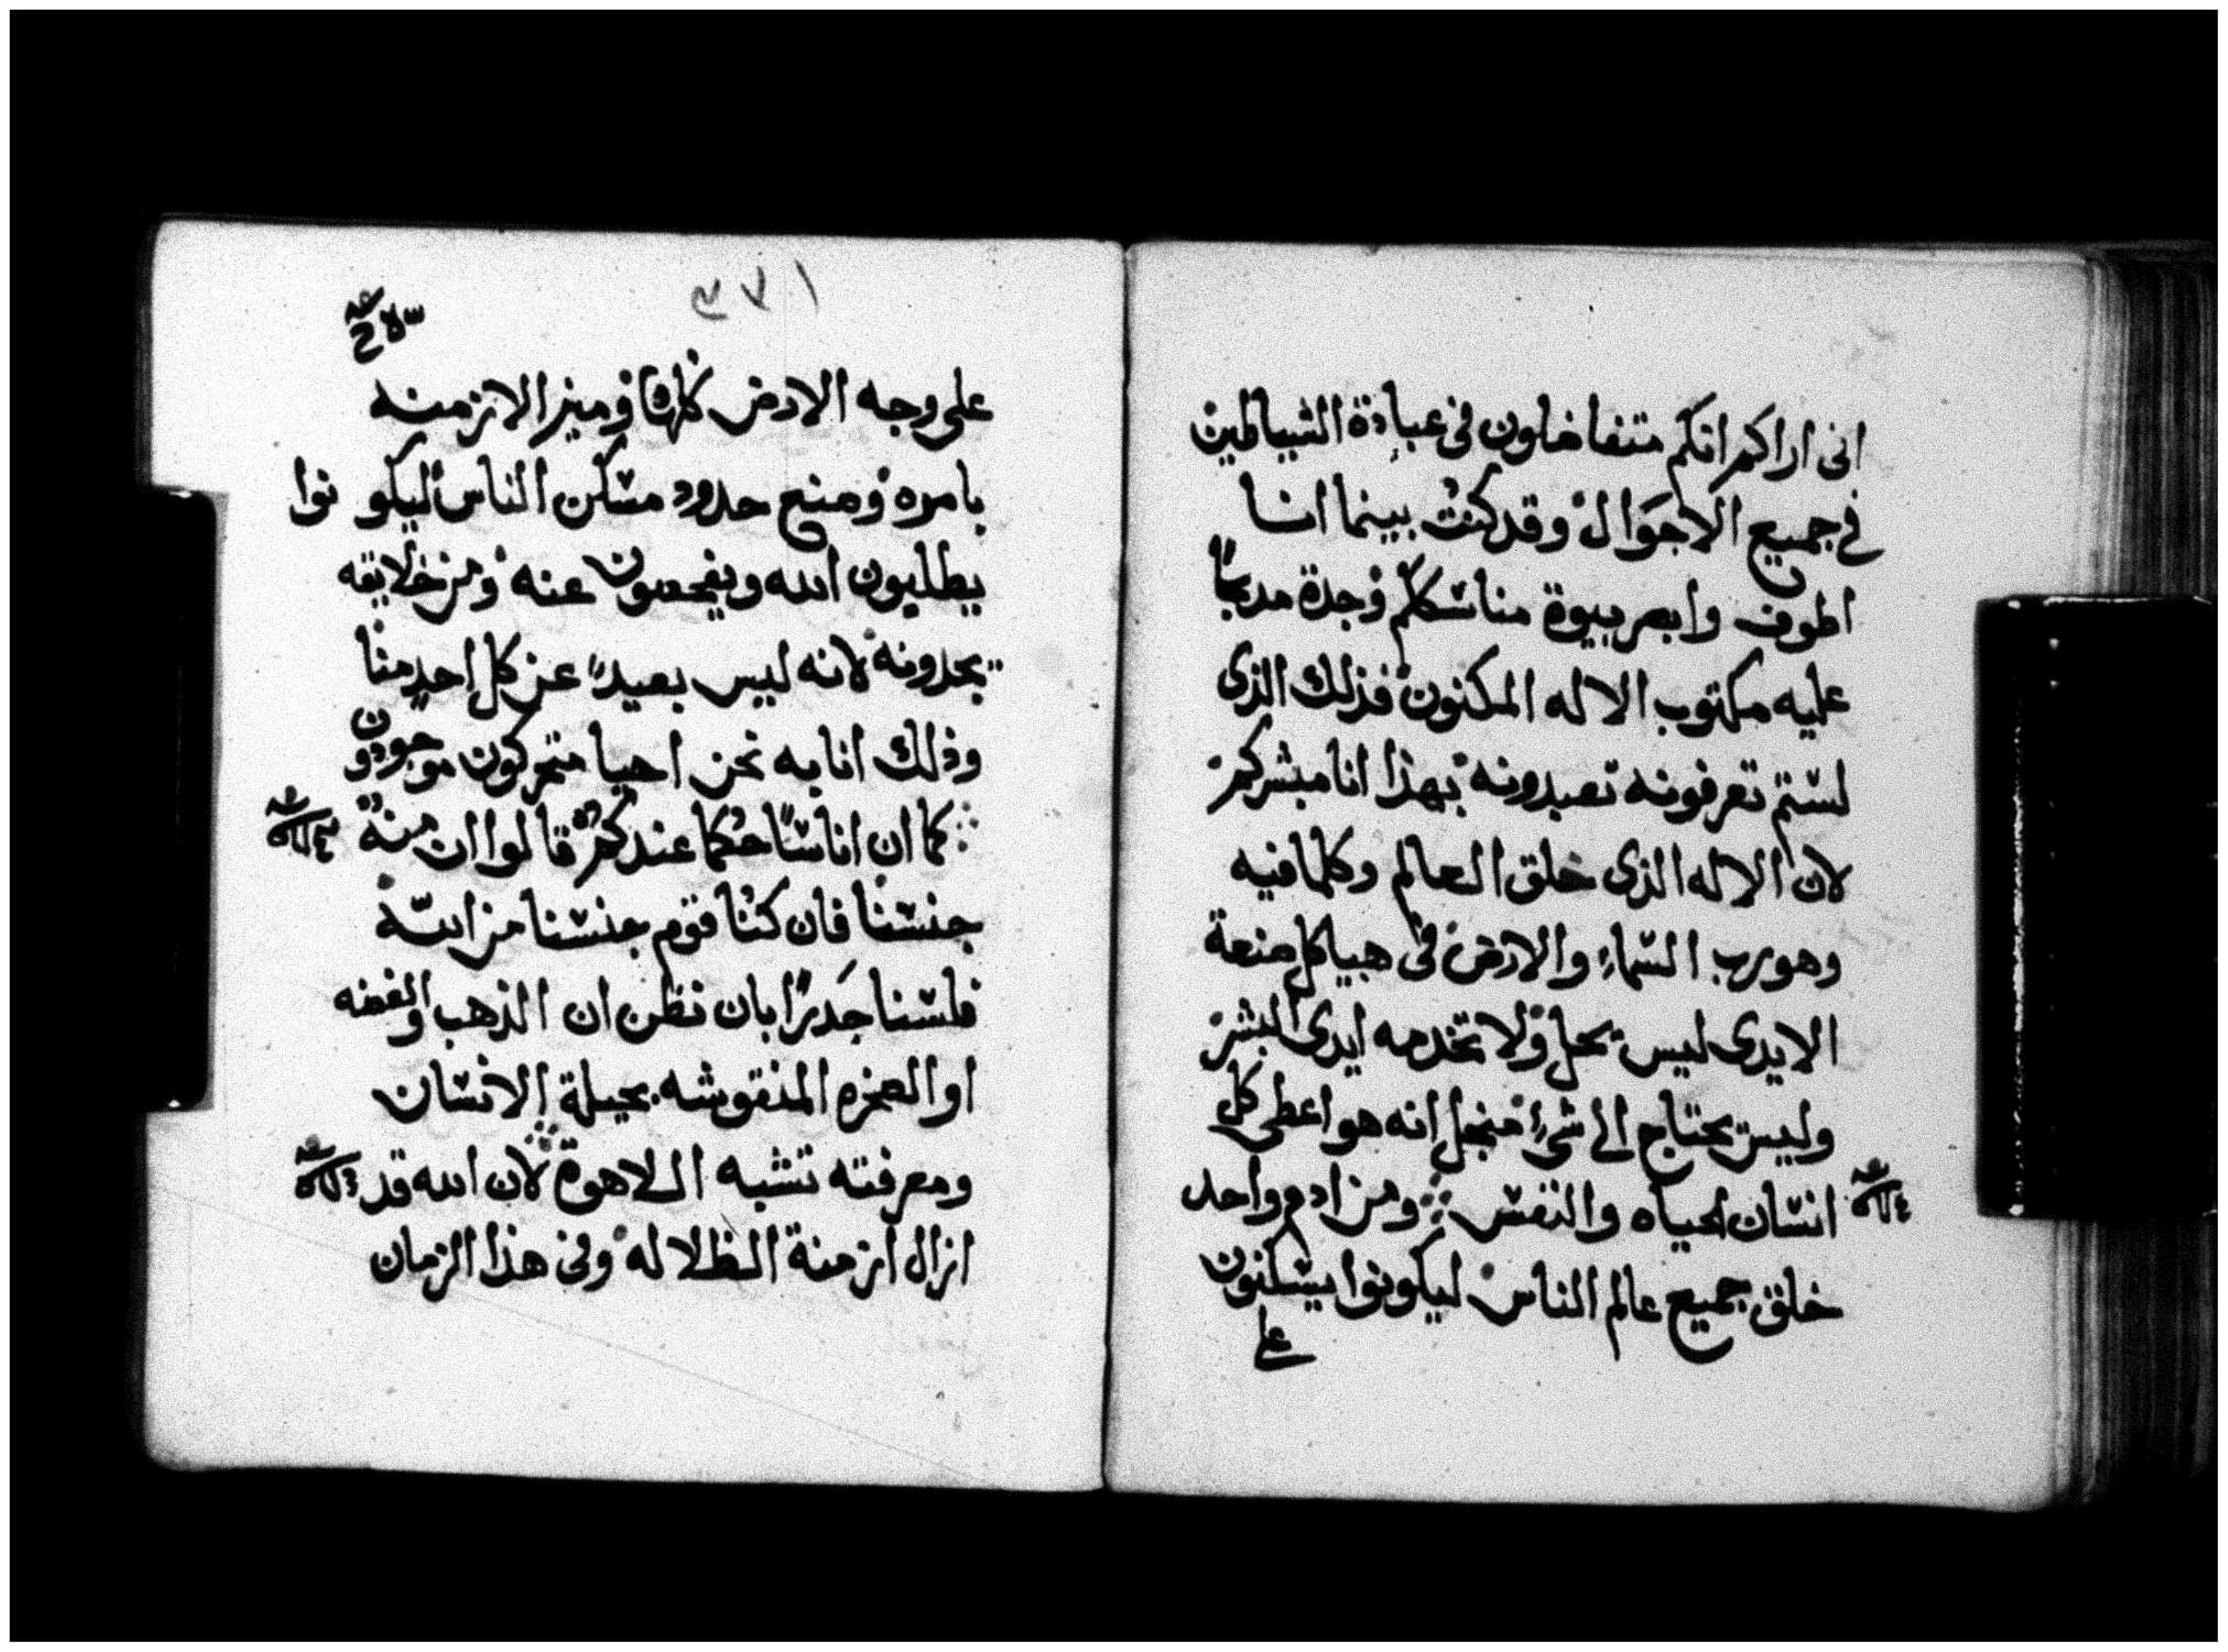 انى اراكم انكم متفاضلون فى عبادة الشياطين
فى جميع الاحوال وقد كنت بينما انا
اطوف وابصر بيوة مناسككم وجدة مدبحًا
عليه مكتوب الاله المكنون فذلك الذى
لستم تعرفونه تعبدونه بهذا انا مبشركم
لان الاله الذى خلق العالم وكلما فيه
وهو رب السماء والارض فى هياكل صنعة
الايدى ليس يحل ولا تخدمه ايدى البشر
وليس يحتاج الى شىء منجل انه هو اعطى كل
انسان الحياه والنفس ومن ادم واحد
خلق جميع عالم الناس ليكونوا يسكنون
على
١٧٣
على وجه الارض كلها وميز الازمنه
بامره ومنع حدود مسكن الناس ليكونوا
يطلبون الله ويفحصون عنه ومن خلايقه
يجدونه لانه ليس بعيدًا عن كل احد منا
وذلك انا به نحن احيا متحركون موجودون
كما ان اناسًا حكما عندكم قالوا ان منه
جنسنا فان كنا قوم جنسنا من الله
فلسنا جديرًا بان نظن ان الذهب والفضه
او الصخره المنقوشه بحيلة الانسان
ومعرفته تشبه اللاهوة لان الله قد
ازال ازمنة الظلاله وفى هذا الزمان